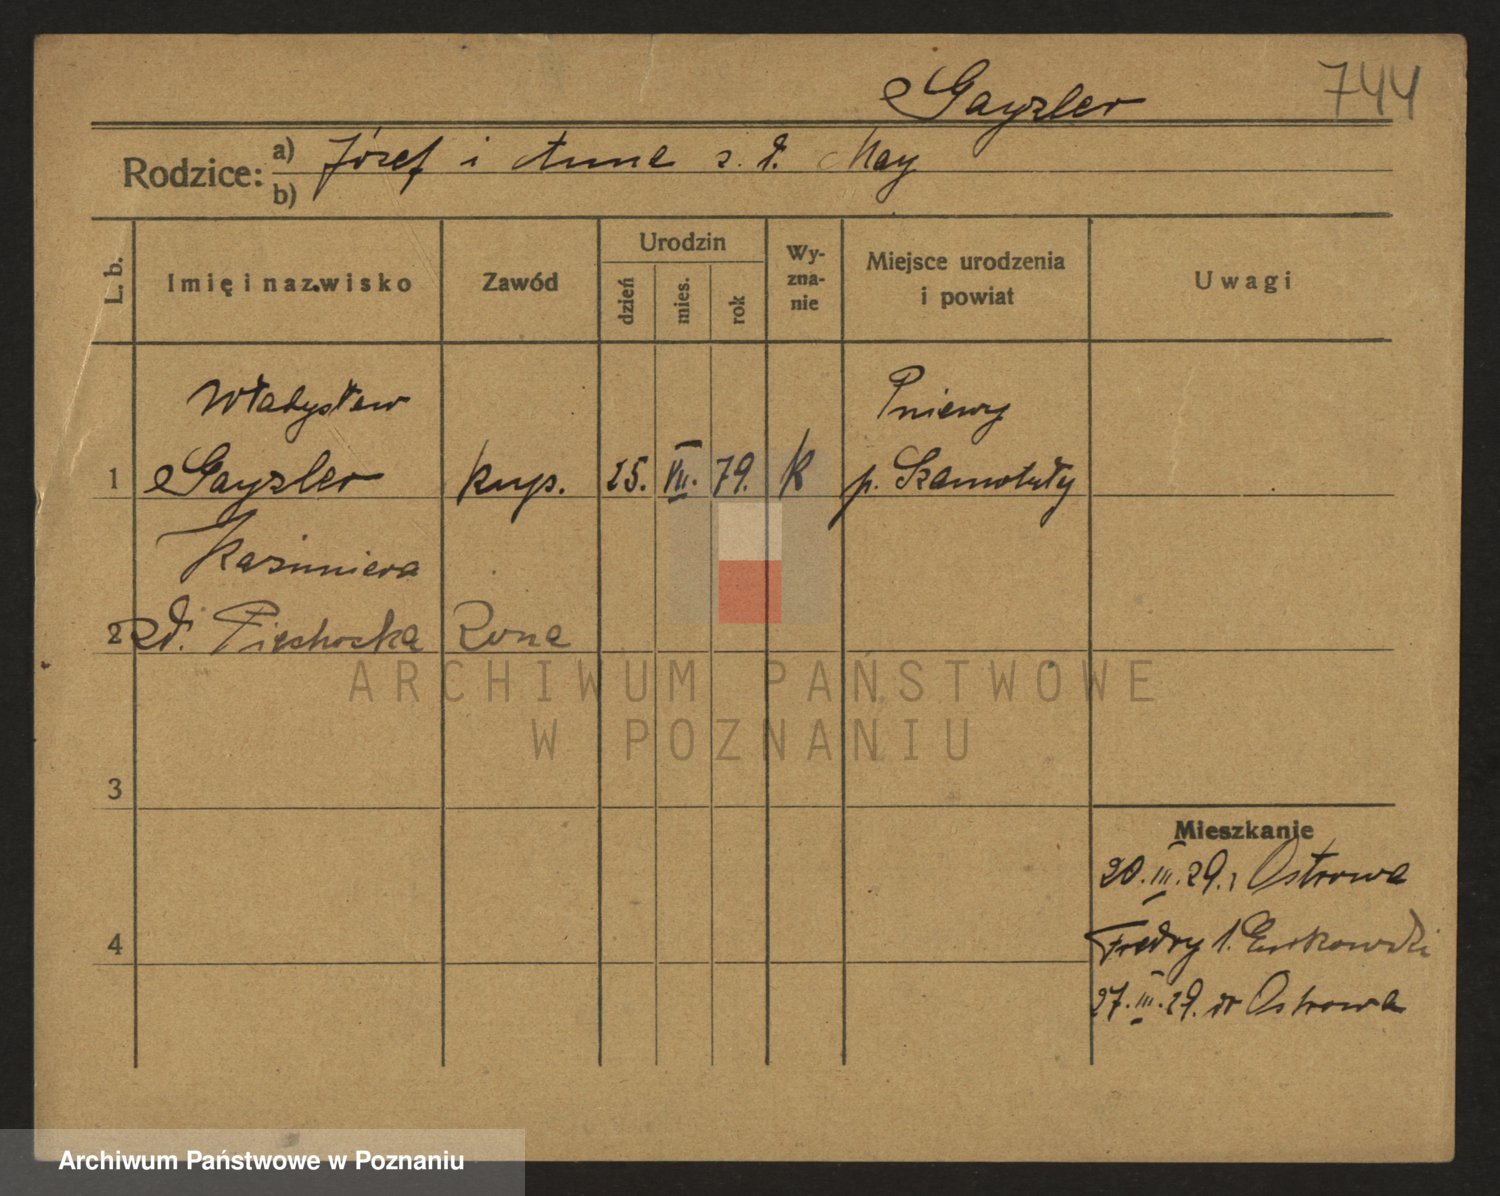 Gayzler 744
Rodzice: a) b) Józef i Anna z. d. May
L. b. Imię i nazwisko Zawód Urodzin dzień mies. rok Wy-zna-nie Miejsce urodzenia i powiat Uwagi
Władysław Pniewy
1 Gayzler kup. 25. VII. 79. k p. Szamotuły
Kazimiera
2 zd. Piechocka żona
ARCHIWUM PAŃSTWOWE
W POZNANIU
3
Mieszkanie
20. III. 29. z Ostrowa
4 Fredry 1.
27. III. 29. do Ostrowa
Archiwum Państwowe w Poznaniu